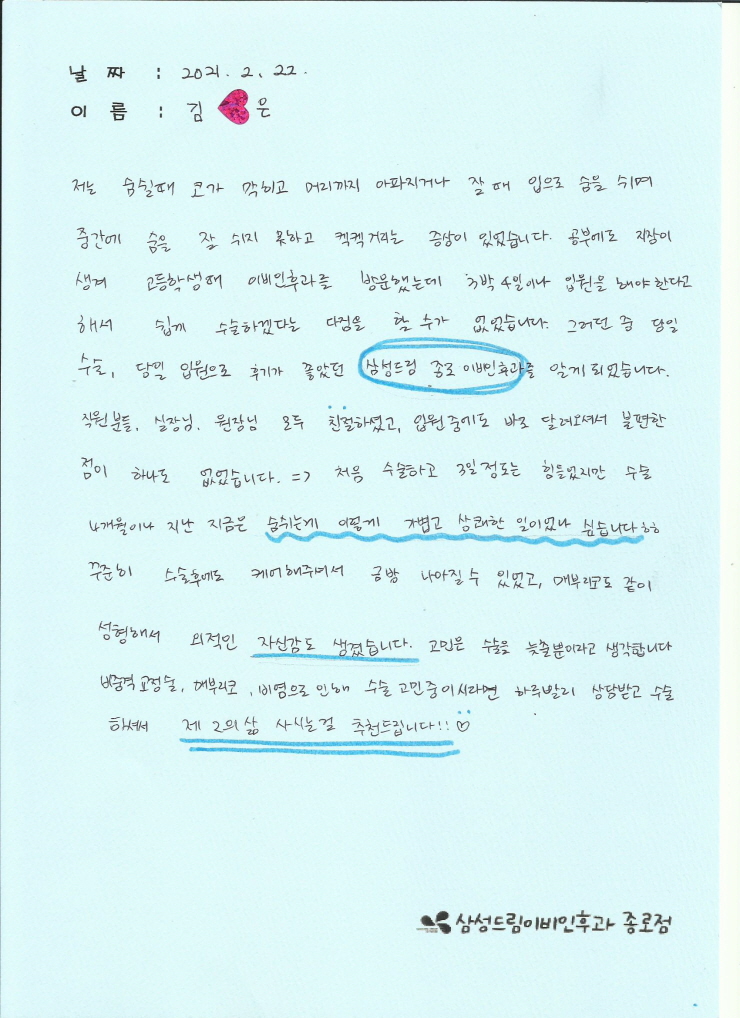 날 짜 : 2021. 2. 22.
이 름 : 김 은
저는 숨쉴때 코가 막히고 머리까지 아파지거나 잘 때 입으로 숨을 쉬며
중간에 숨을 잘 쉬지 못하고 켁켁거리는 증상이 있었습니다. 공부에도 지장이
생겨 고등학생때 이비인후과를 방문했는데 3박 4일이나 입원을 해야 한다고
해서 쉽게 수술하겠다는 다짐을 할 수가 없었습니다. 그러던 중 당일
수술, 당일 입원으로 후기가 좋았던 삼성드림 종로 이비인후과를 알게 되었습니다.
직원분들, 실장님, 원장님 모두 친절하셨고, 입원중에도 바로 달려오셔서 불편한
점이 하나도 없었습니다. => 처음 수술하고 3일정도는 힘들었지만 수술
4개월이나 지난 지금은 숨쉬는게 이렇게 가볍고 상쾌한 일이었나 싶습니다ㅎㅎ
꾸준히 수술후에도 케어해주셔서 금방 나아질 수 있었고, 매부리코도 같이
성형해서 외적인 자신감도 생겼습니다. 고민은 수술을 늦출뿐이라고 생각합니다
비중격 교정술, 매부리코, 비염으로 인해 수술 고민중이시라면 하루빨리 상담받고 수술
하셔서 제 2의 삶 사시는걸 추천드립니다!! ♡
삼성드림이비인후과 종로점